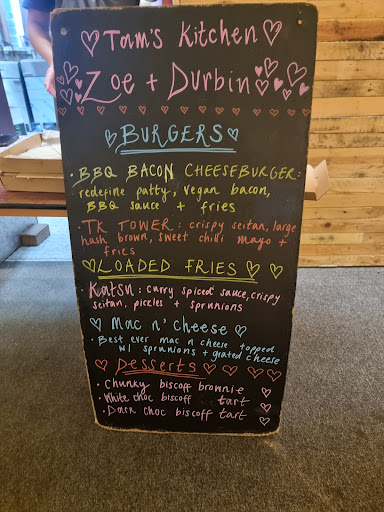 Tam's Kitchen
Zoe + Durbin
BURGERS
· BBQ BACON CHEESEBURGER:
redefine patty, vegan bacon,
BBQ sauce + fries
· TK TOWER: crispy seitan, large
hash brown, sweet chilli mayo +
fries
LOADED FRIES
· Katsu: curry spiced sauce, crispy
seitan, pickles + sprunions
Mac n' cheese
· Best ever mac n cheese topped
w/ sprunions + grated cheese
Desserts
· Chunky biscoff brownie
· White choc biscoff tart
· Dark choc biscoff tart